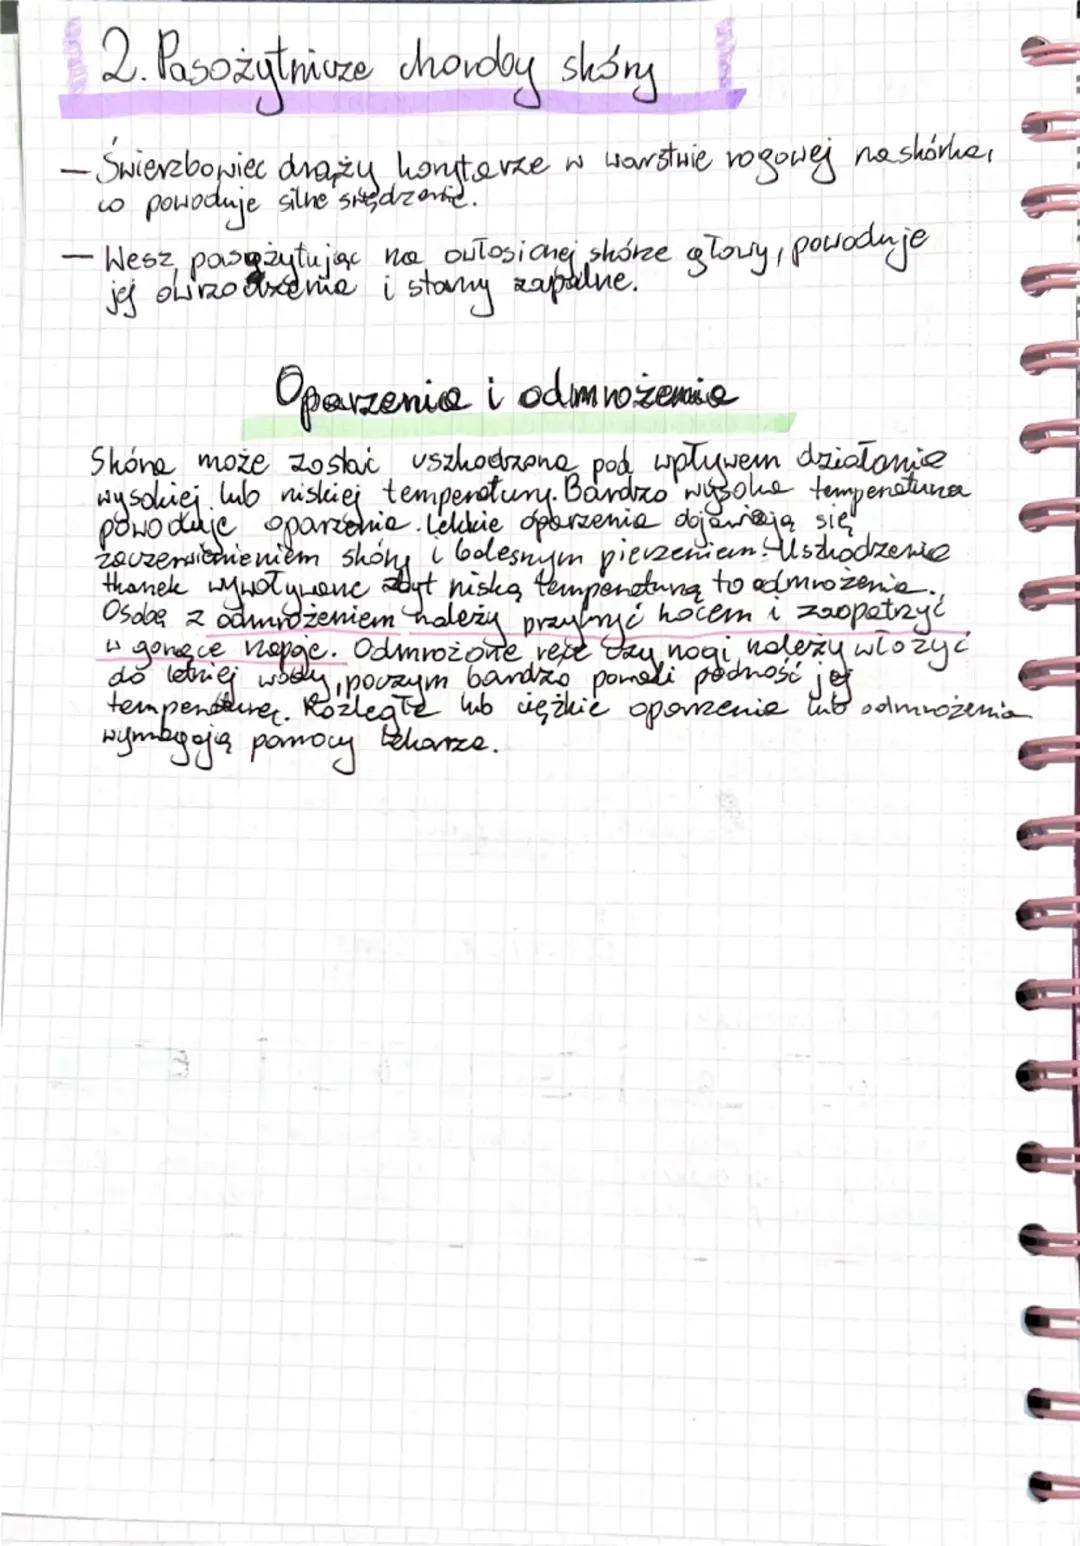 2. Pasożytnicze choroby skóry
— Świerzbowiec drąży korytarze w warstwie rogowej naskórka,
co powoduje silne swędzenie.
— Wesz, pasożytując na owłosionej skórze głowy, powoduje
jej owrzodzenia i stany zapalne.
Oparzenia i odmrożenia
Skóra może zostać uszkodzona pod wpływem działania
wysokiej lub niskiej temperatury. Bardzo wysoka temperatura
powoduje oparzenia. Lekkie oparzenia objawiają się
zaczerwienieniem skóry i bolesnym pieczeniem. Uszkodzenie
tkanek wywoływane zbyt niską temperaturą to odmrożenia.
Osobę z odmrożeniem należy przykryć kocem i zaopatrzyć
w gorące napoje. Odmrożone ręce czy nogi należy włożyć
do letniej wody, poczym bardzo pomału podnosć jej
temperaturę. Rozległe lub ciężkie oparzenia lub odmrożenia
wymagają pomocy lekarza.